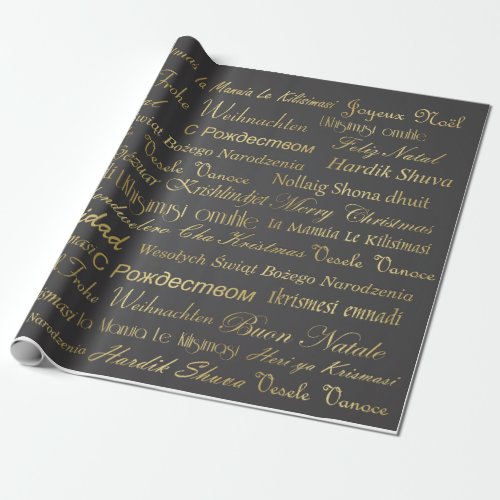 la Manuia Le Kilisimasi Joyeux Noël
Frohe Weihnachten Ukisimusi omuhle
Feliz Natal
С Рождеством Hardik Shuva
Świąt Bożego Narodzenia Nollaig Shona dhuit
Vesele Vanoce
Krishlindjet Merry Christmas
Ukisimusi omuhle Ia Manuia Le Kilisimasi
Cha Kristmas Vesele Vanoce
Wesołych Świąt Bożego Narodzenia
С Рождеством Ikrismesi emnadi
Frohe Weihnachten Buon Natale
la Manuia Le Kilisimasi Heri ya Krismasi
Narodzenia Hardik Shuva Vesele Vanoce